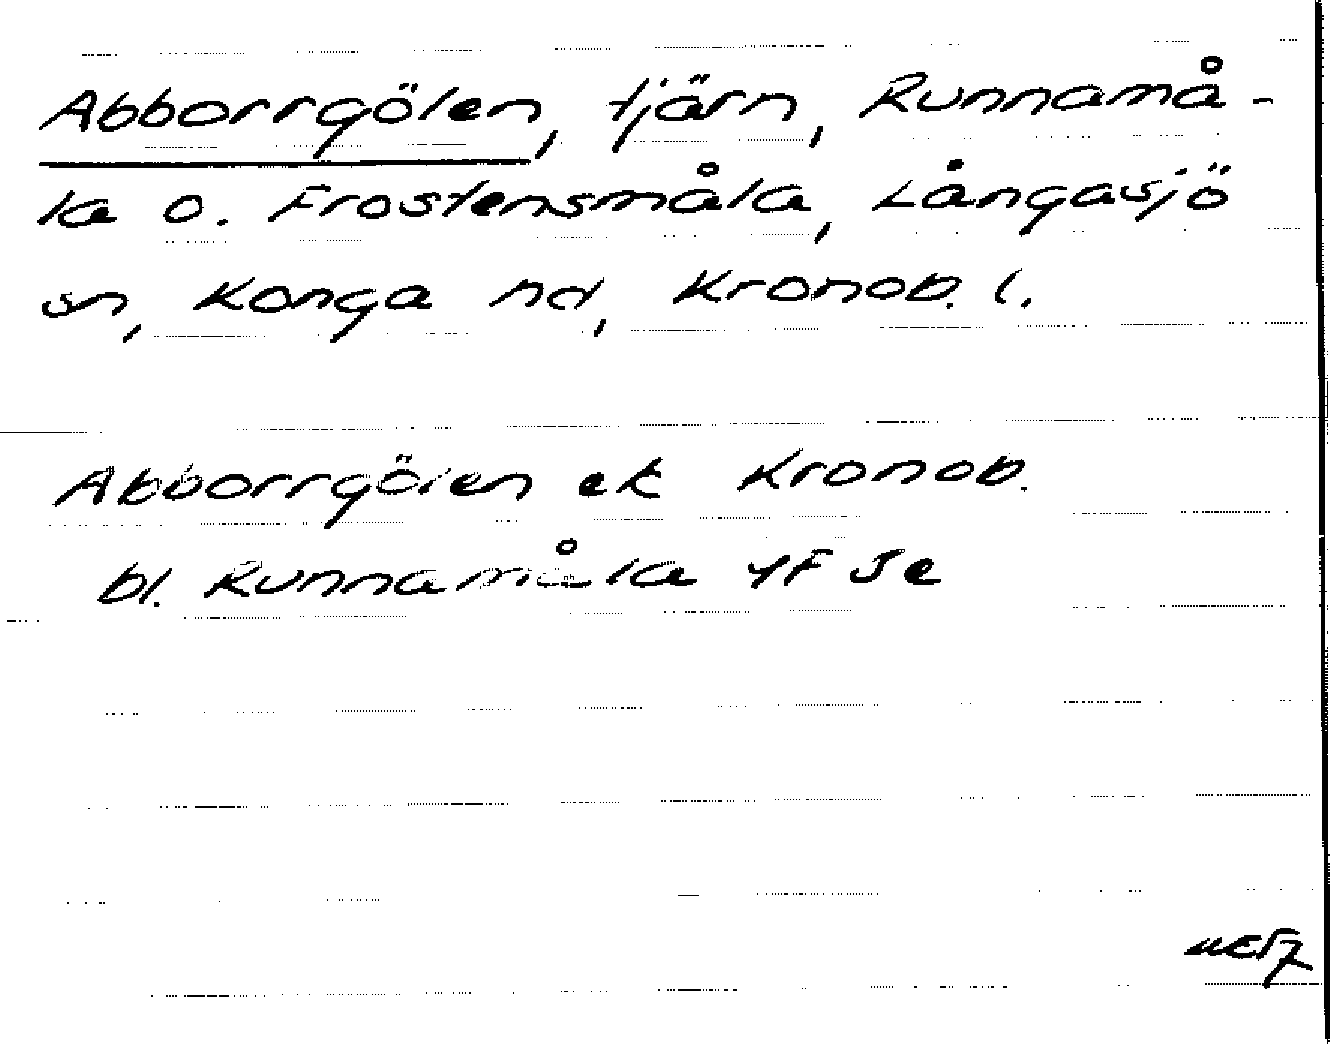 Abborrgölen, tjärn, Runnamå-
la o. Frostensmåla, Långasjö
sn, Konga hd, Kronob. l.
Abborrgölen ek Kronob.
bl. Runnamåla 4F 5e